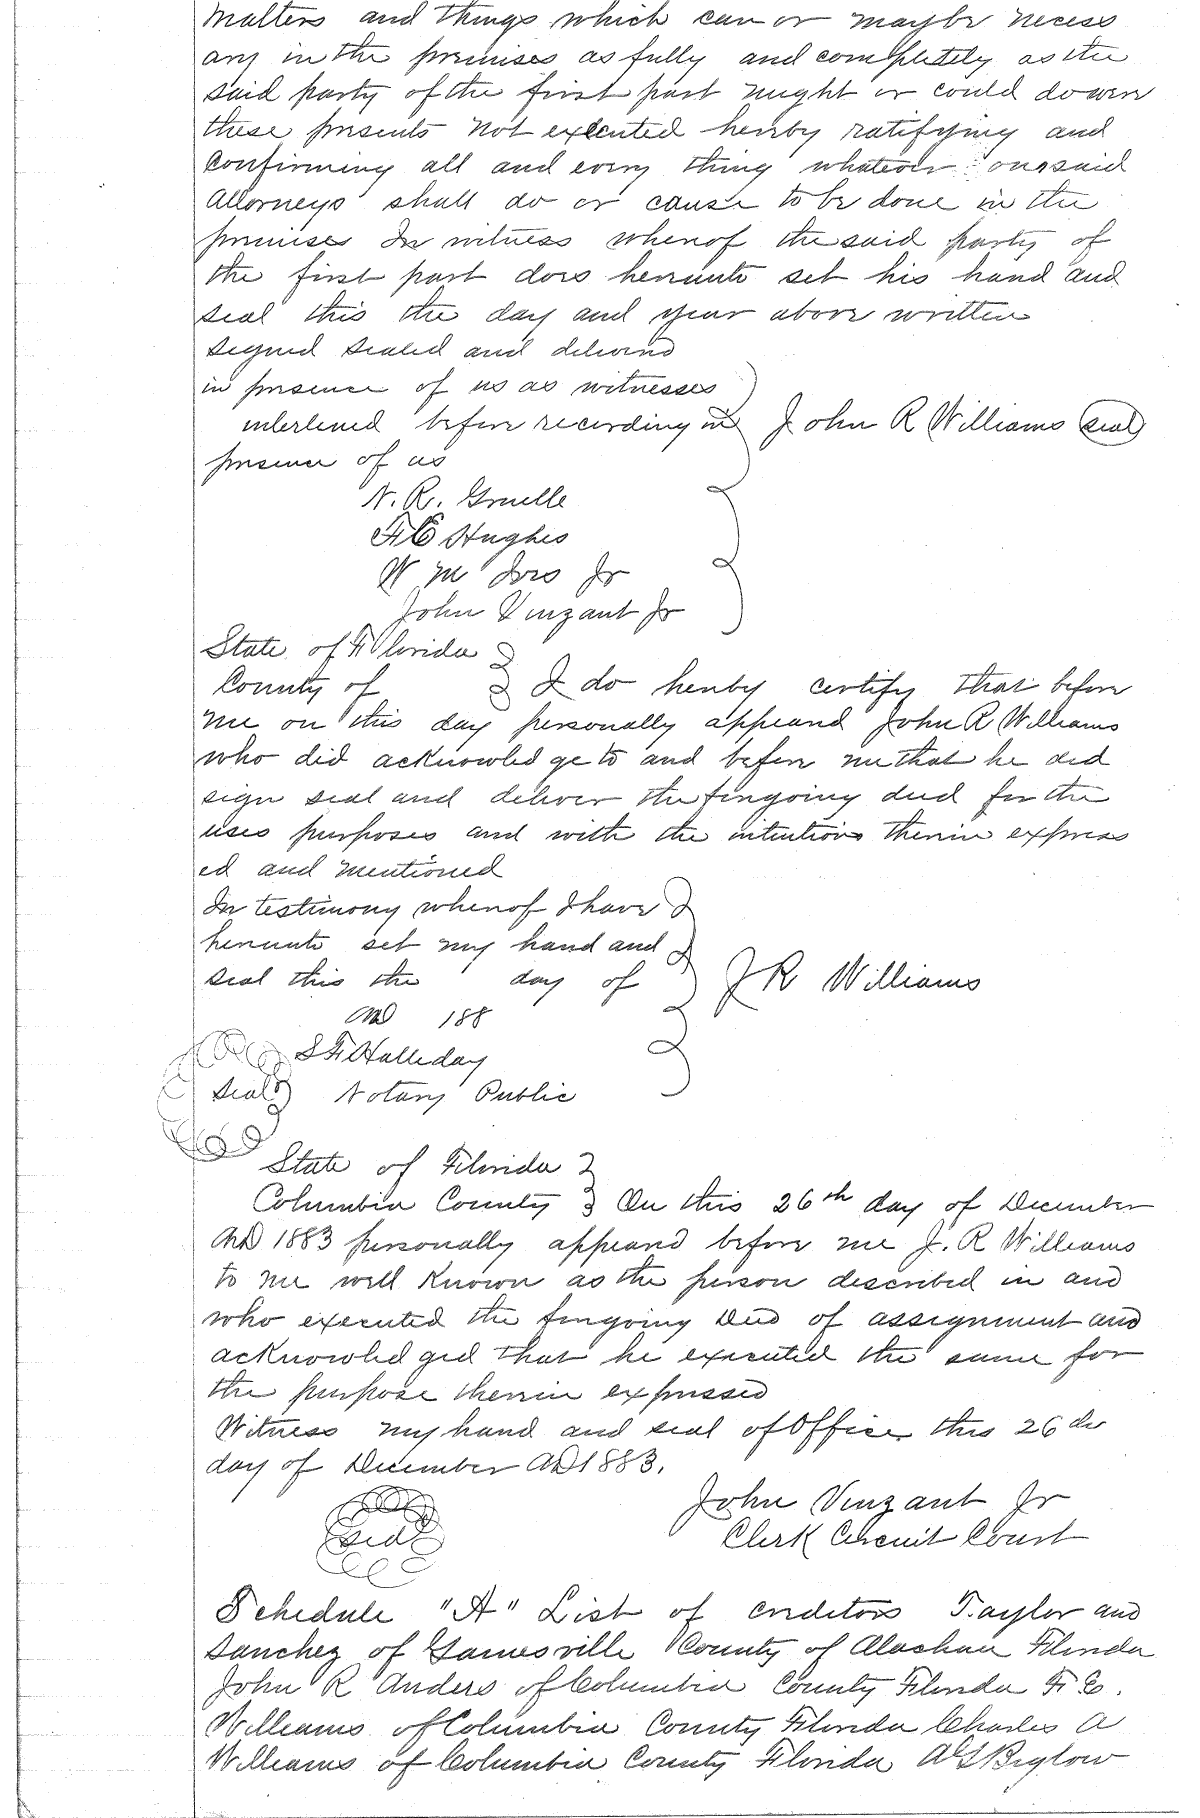 matters and things which can or maybe necess
ary in the premises as fully and completely as the
said party of the first part might or could do were
these presents not executed hereby ratifying and
confirming all and every thing whatever our said
Attorneys shall do or cause to be done in the
premises In witness whereof the said party of
the first part does hereunto set his hand and
seal this the day and year above written
signed sealed and delivered
in presence of us as witnesses
interlined before recording in John R Williams seal
presence of us
N. R. Gruelle
F E Hughes
W M Ives Jr
John Vinzant Jr
State of Florida
County of I do hereby certify that before
me on this day personally appeared John R Williams
who did acknowledge to and before me that he did
sign seal and deliver the foregoing deed for the
uses purposes and with the intentions therein express
ed and mentioned
In testimony whereof I have
hereunto set my hand and
seal this the day of J R Williams
AD 188
S F Halliday
seal Notary Public
State of Florida
Columbia County On this 26th day of December
AD 1883 personally appeared before me J. R Williams
to me well known as the person described in and
who executed the foregoing Deed of assignment and
acknowledged that he executed the same for
the purpose therein expressed
Witness my hand and seal of Office this 26th
day of December AD 1883.
John Vinzant Jr
seal Clerk Circuit Court
Schedule "A" List of creditors Taylor and
Sanchez of Gainesville County of Alachua Florida
John R Anders of Columbia County Florida F E.
Williams of Columbia County Florida Charles A
Williams of Columbia County Florida A S Biglow